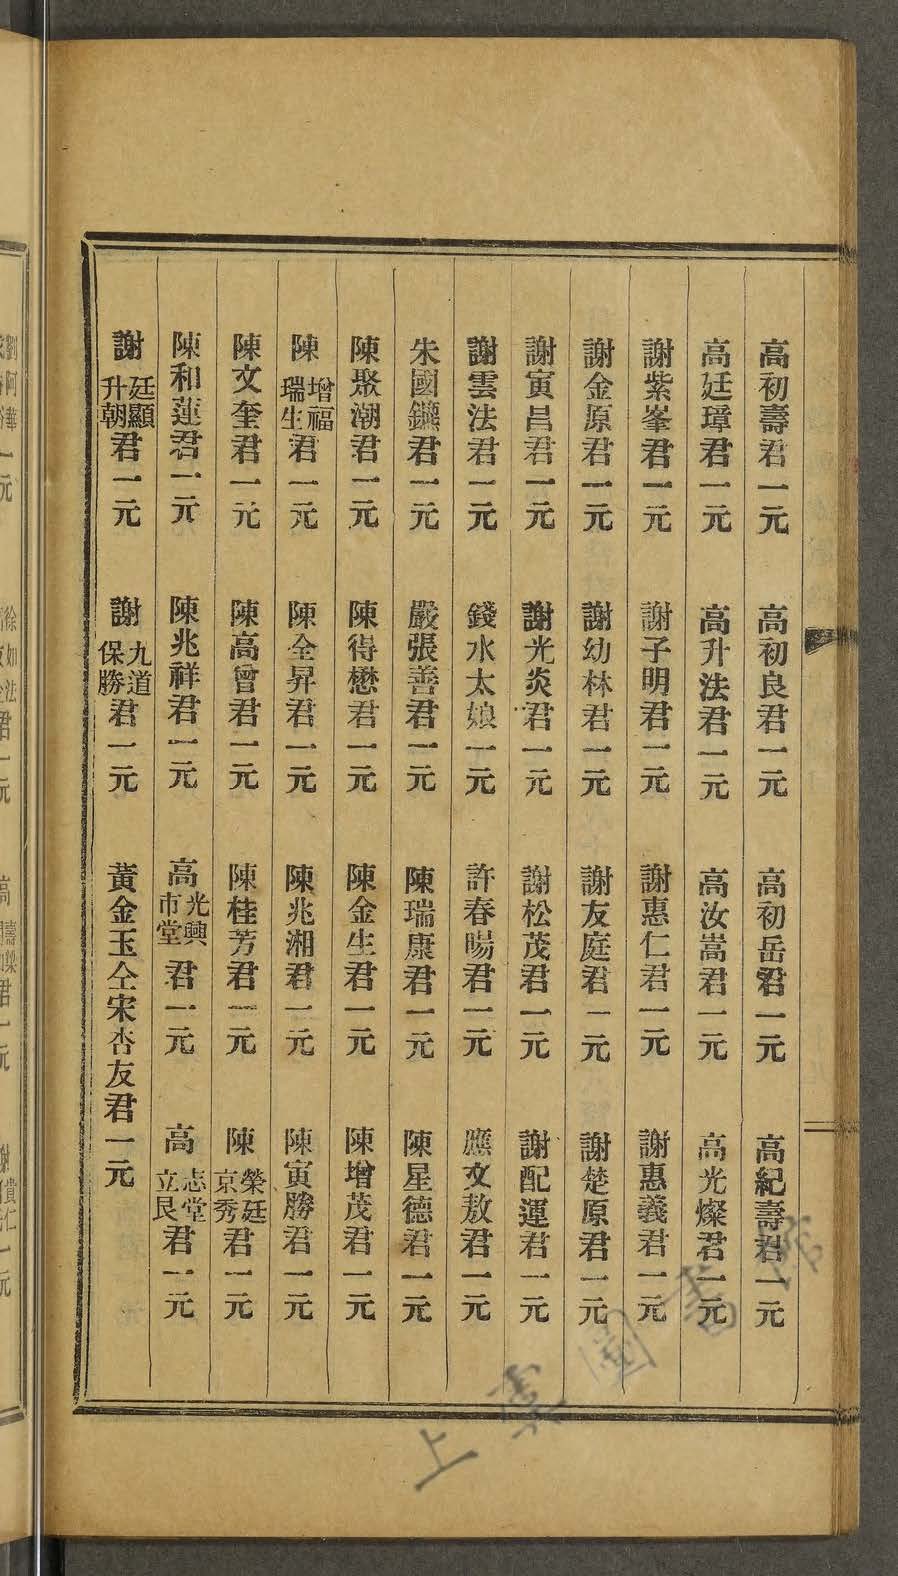 高初壽君一元　高初良君一元　高初岳君一元　高紀壽君一元
高廷璋君一元　高升法君一元　高汝嵩君一元　高光燦君一元
謝紫峯君一元　謝子明君一元　謝惠仁君一元　謝惠義君一元
謝金原君一元　謝幼林君一元　謝友庭君一元　謝楚原君一元
謝寅昌君一元　謝光炎君一元　謝松茂君一元　謝配運君一元
謝雲法君一元　錢水太娘一元　許春暘君一元　應文敖君一元
朱國君一元　嚴張善君一元　陳瑞康君一元　陳星德君一元
陳聚潮君一元　陳得懋君一元　陳金生君一元　陳增茂君一元
陳增福瑞生君一元　陳全昇君一元　陳兆湘君一元　陳寅勝君一元
陳文奎君一元　陳高曾君一元　陳桂芳君一元　陳榮廷京秀君一元
陳和蓮君一元　陳兆祥君一元　高光興市堂君一元　高志堂立艮君一元
謝廷顯升朝君一元　謝九道保勝君一元　黃金玉仝宋杏友君一元
上虞圖書館